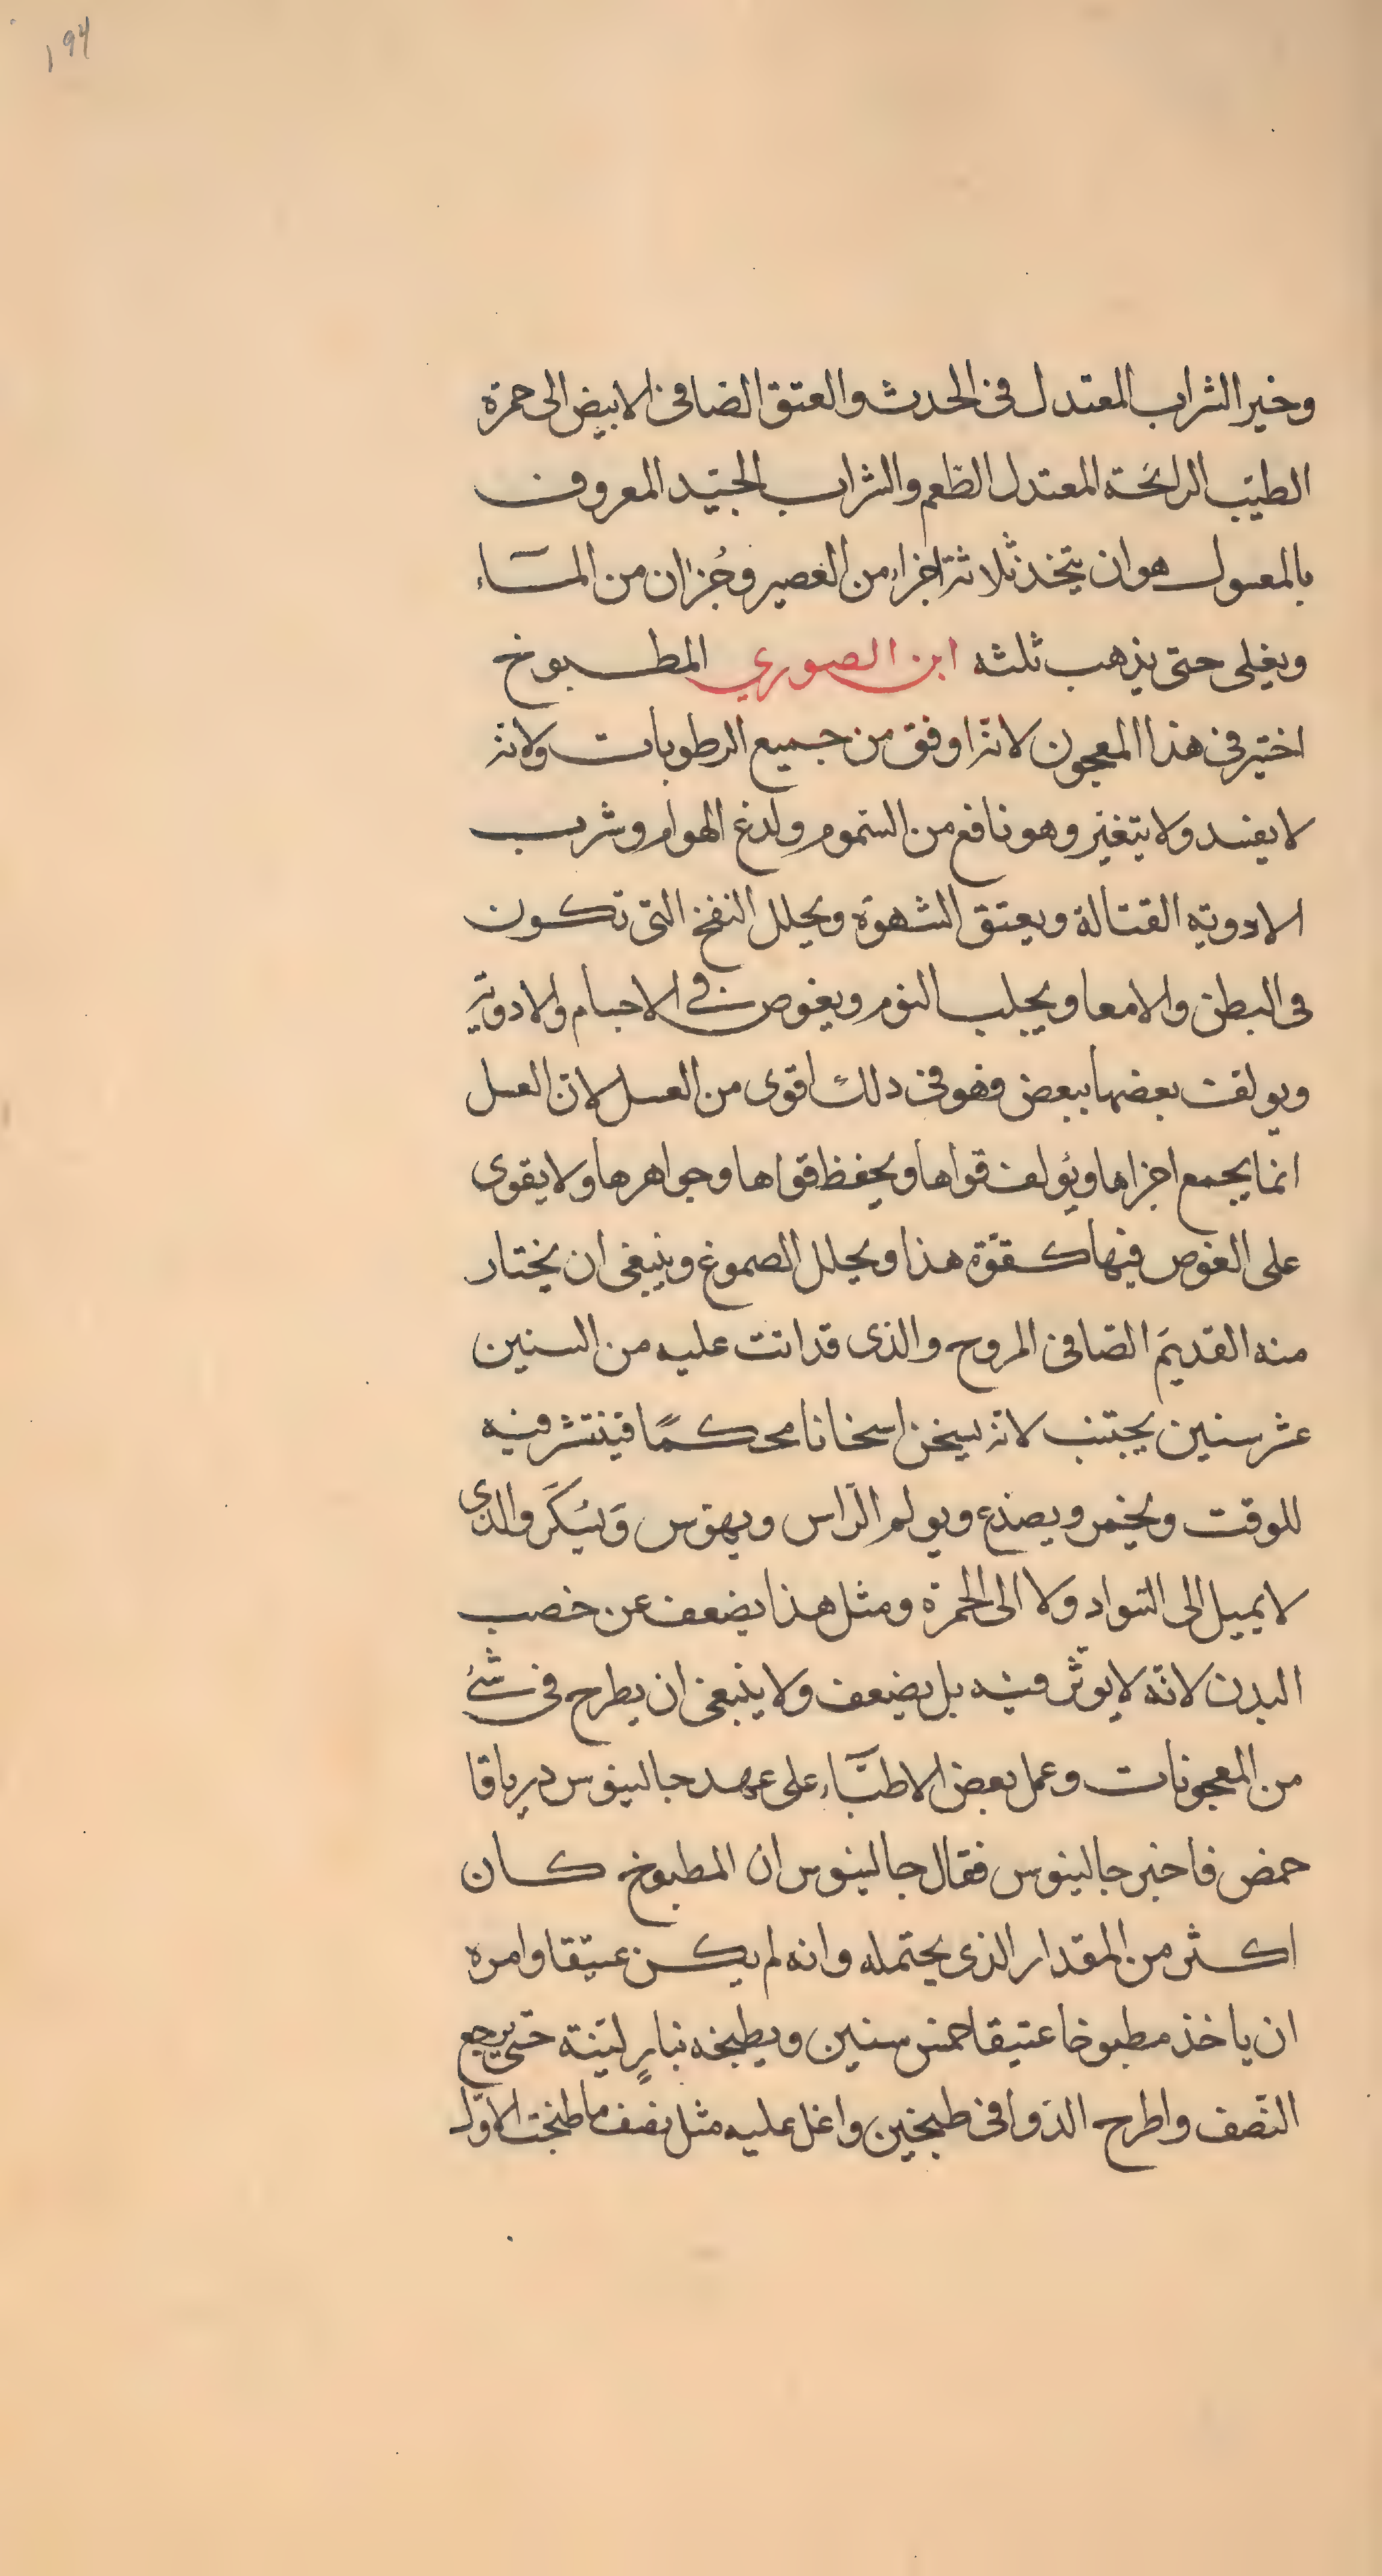 194
وخير الشراب المعتدل فى الحدث والعتق الصافى الابيض الى حمرة
الطيب الرائحة المعتدل الطعم والشراب الجيد المعروف
بالمعسول هو ان يتخذ ثلاثة اجزاء من العصير وجزان من المآء
ويغلى حتى يذهب ثلثه ابن الصوري المطبوخ
اختير فى هذا المعجون لانه اوفق من جميع الرطوبات ولانه
لا يفسد ولا يتغير وهو نافع من السموم ولدغ الهوام وشرب
الادويه القتالة ويعتق الشهوة ويحلل النفخ التى تكون
فى البطن والامعا ويجلب النوم ويغوص فى الاجسام والادوية
ويولف بعضها ببعض فهو فى ذلك اقوى من العسل لان العسل
انما يجمع اجزاها ويؤلف قواها ويحفظ قواها وجواهرها ولا يقوى
على الغوص فيها كقوة هذا ويحلل الصموغ وينبغى ان يختار
منه القديم الصافى المروح والذى قد اتت عليه من السنين
عشر سنين يجتنب لانه يسخن اسخانا محكما فينتشر فيه
للوقت ويخمر ويصدع ويولم الراس ويهوس ويسكر والذى
لا يميل الى السواد ولا الى الحمرة ومثل هذا يضعف عن خصب
البدن لانه لا يوثر فيه بل يضعف ولا ينبغى ان يطرح فى شئ
من المعجونات وعمل بعض الاطبآء على عهد جالينوس درياقا
حمض فاخبر جالينوس فقال جالينوس ان المطبوخ كان
اكثر من المقدار الذى يحتمله وانه لم يكن عتيقا وامره
ان ياخذ مطبوخا عتيقا خمس سنين ويطبخه بنار لينة حتى يرجع
النصف واطرح الدوا فى طبخين واغل عليه مثل نصف ما طبخت الاول